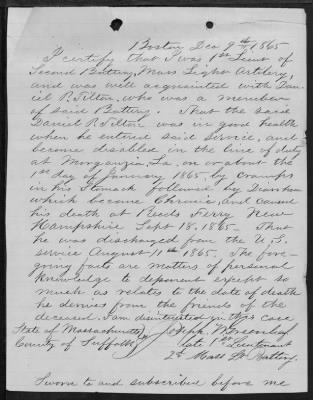 Boston Dec 9th 1865
I certify that I was 1st Lieut of
Second Battery, Mass Light Artilery,
and was well acquainted with Dan-
iel P. Tilton, who was a member
of said Battery. That the said
Daniel P. Tilton was in good health
when he entered said service, and
became disabled in the line of duty
at Morganzia, La. on or about the
1st day of January 1865, by cramps
in his Stomach followed by Diarrhea
which became Chronic, and caused
his death at Reeds Ferry New
Hampshire, Sept 18, 1865. That
he was discharged from the U.S.
service August 11th 1865. The fore-
going facts are matters of personal
knowledge to deponent except so
much as relate to the date of death
he derives from the friends of the
deceased. I am disinterested in this case
State of Massachusetts Joseph W Greenleaf
County of Suffolk late 1st Lieutenant
2d Mass Lt Battery.
Sworn to and subscribed before me